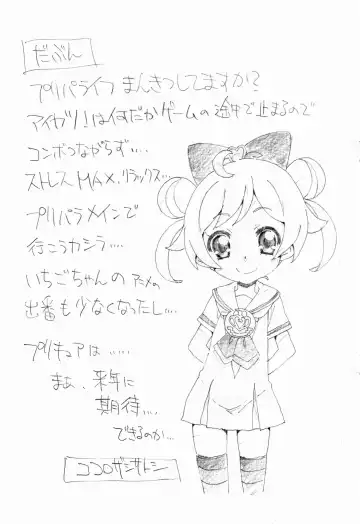 だぶん
プリパライフ まんきつしてますか?
アイカツ!は何だかゲームの途中で止まるので
コンボつながらず・・・・
ストレスMAX.リラックス・・・
プリパラメインで
行こうカシラ・・・・
いちごちゃんの アニメの
出番も少なくなったし・・・・
プリキュアは ・・・・・
まぁ、来年に
期待・・・・
できるのか・・・
ココロザシサトシ